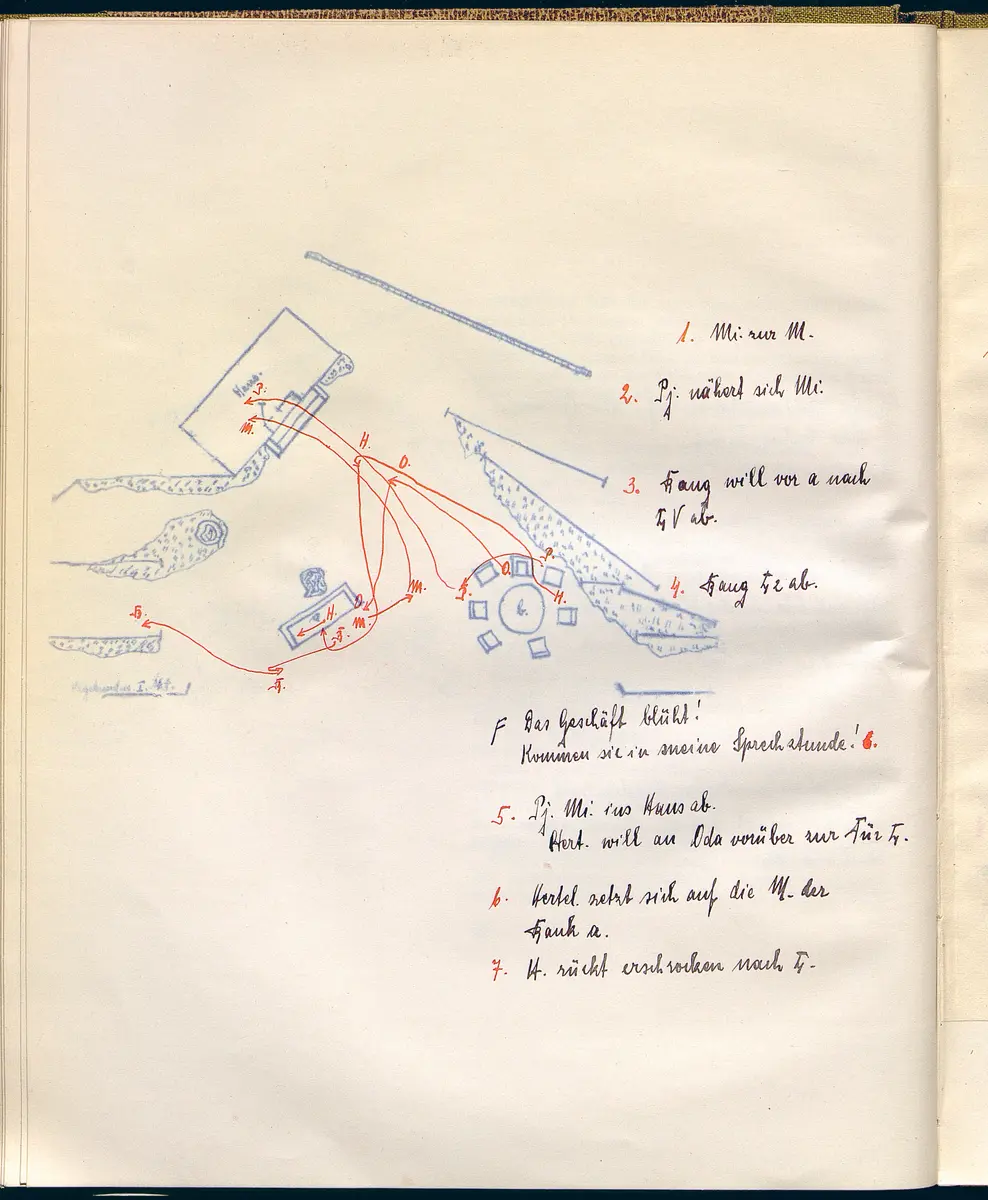 Haus.
P.
M.
H.
O.
P.
O.
H.
M.
O.
M.
H.
a
b.
1. Mi. zur M.
2. Pj. nähert sich Mi.
3. Hang will vor a nach
V ab.
4. Hang 2 ab.
F Das Geschäft blüht!
Kommen sie in meine Sprechstunde! 6.
5. Pj. Mi. ins Haus ab.
Hert. will an Oda vorüber zur Tür
6. Hertel. setzt sich auf die M. der
Bank a.
7. H. rückt erschrocken nach